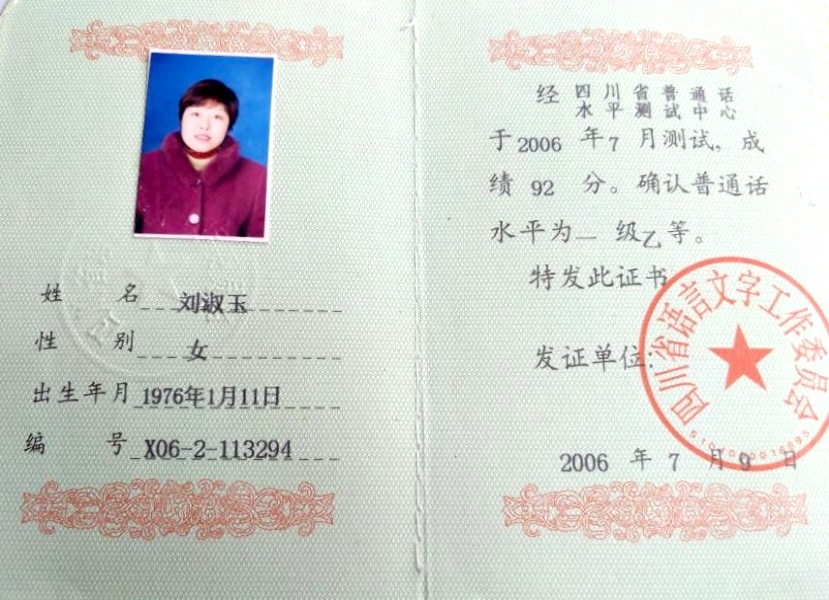 姓 名 刘淑玉
性 别 女
出生年月 1976年1月11日
编 号 X06-2-113294
经 四川省普通话
水平测试中心
于2006 年7 月测试，成
绩 92 分。确认普通话
水平为一 级乙等。
特发此证书
发证单位：
四川省语言文字工作委员会
2006 年 7 月 9 日